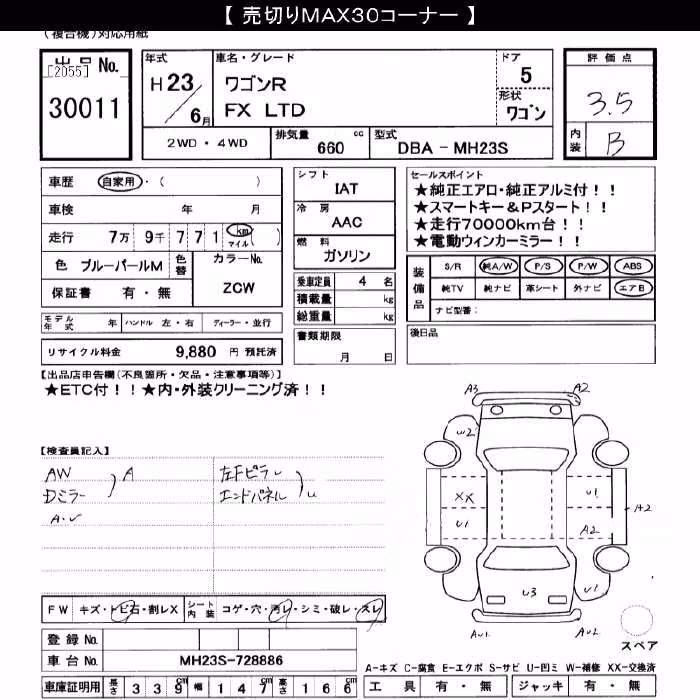 【 売切りMAX30コーナー 】
(複合機)対応用紙
出品 No.
[2055]
30011
年式
H23/6月
車名・グレード
ワゴンR
FX LTD
ドア
5
形状
ワゴン
評価点
3.5
内装
B
2WD・4WD
排気量 660 cc
型式 DBA - MH23S
車歴 自家用・( )
車検 年 月
走行 7万 9千 7 7 1 km マイル ( )
色 ブルーパールM 色替
カラーNo.
ZCW
保証書 有・無
シフト
IAT
冷房
AAC
燃料
ガソリン
乗車定員 4 名
積載量 kg
総重量 kg
セールスポイント
★純正エアロ・純正アルミ付！！
★スマートキー＆Pスタート！！
★走行70000km台！！
★電動ウィンカーミラー！！
装備品
S/R 純A/W P/S P/W ABS
純TV 純ナビ 革シート 外ナビ エアB
ナビ型番：
モデル年式 年 ハンドル 左・右 ディーラー・並行
書類期限
月 日
後日品
リサイクル料金 9,880 円 預託済
【出品店申告欄(不良箇所・欠品・注意事項等)】
★ETC付！！★内・外装クリーニング済！！
【検査員記入】
AW
Dミラー
) A
A・U
左Fピラー
エンドパネル
) U
A3 A2
U2
XX U1
U1 A2
A2
U3 U1
AU1 AU2
スペア
FW キズ・トビ石・割レX
シート内装 コゲ・穴・汚レ・シミ・破レ・スレ
登録 No.
車台 No. MH23S-728886
車庫証明用 長さ 3 3 9 cm 幅 1 4 7 cm 高さ 1 6 6 cm
A-キズ C-腐食 E-エクボ S-サビ U-凹ミ W-補修 XX-交換済
工具 有・無 ジャッキ 有・無